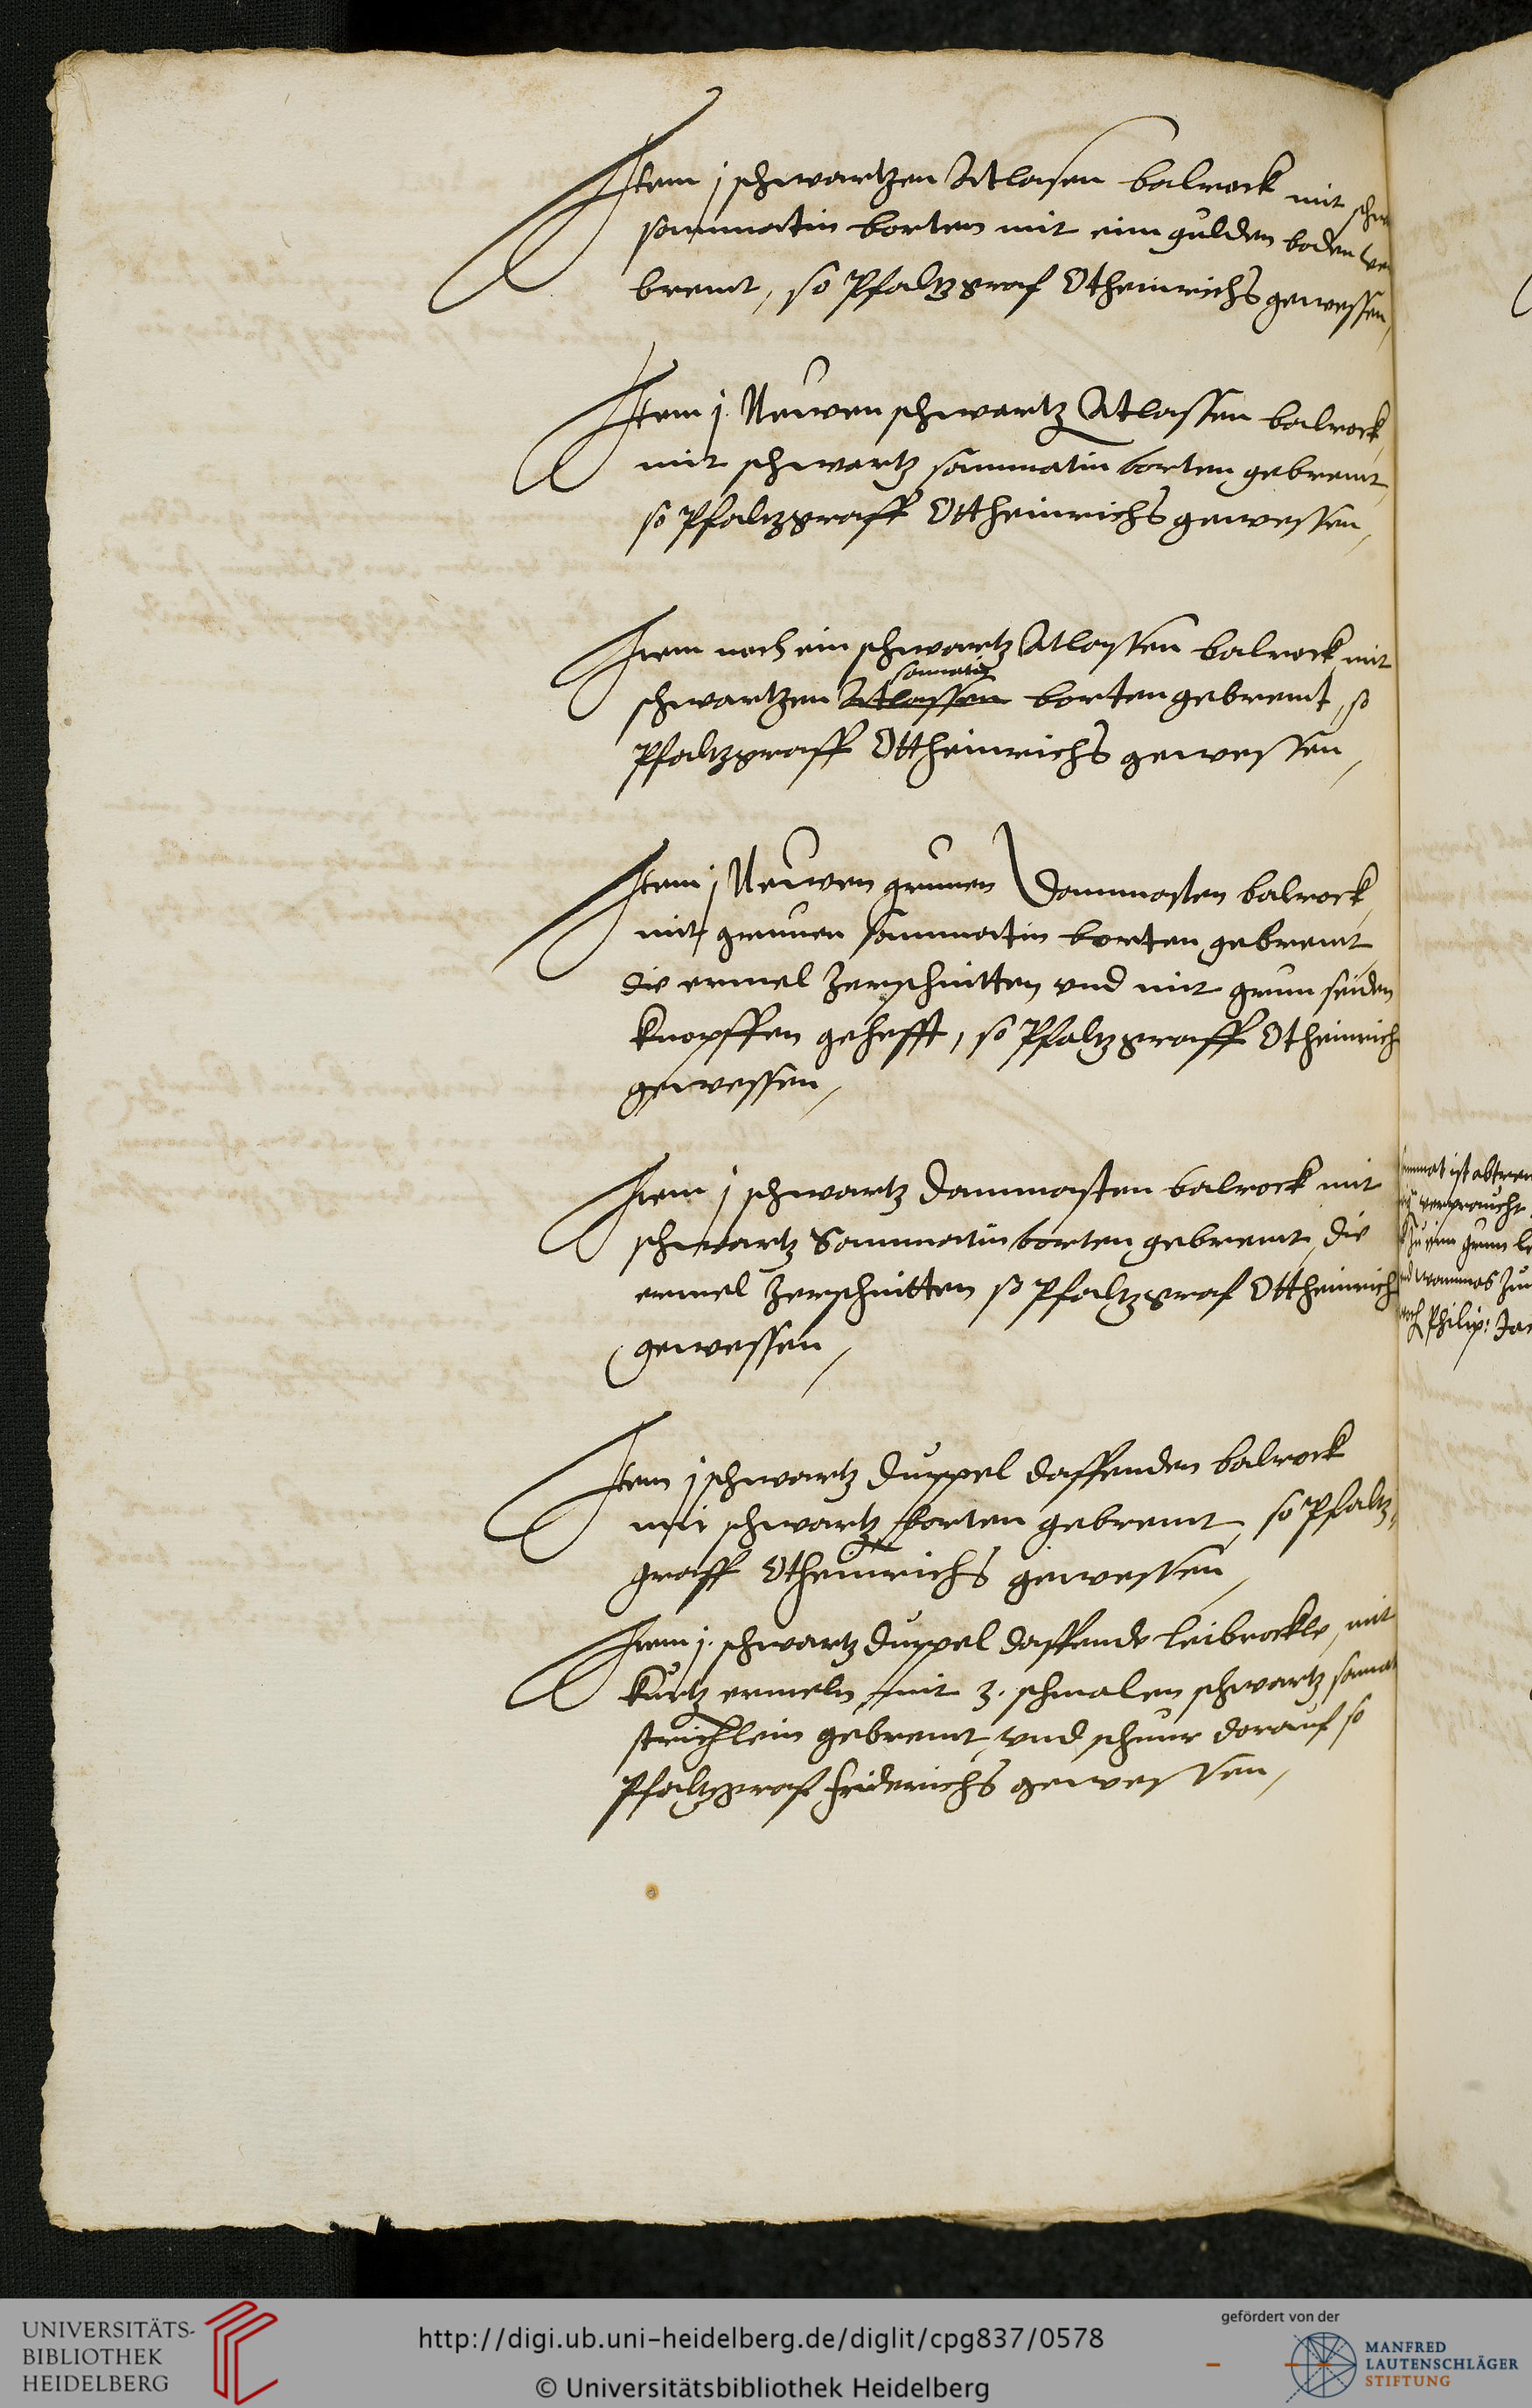 Item j schwartzen Atlasen balrock mit
sammatin borten mit eim gulden boden
bremt, so Pfaltzgraf Otheinrichs gewessen,
Item j. Neuwen schwartz Atlassen balrock
mit schwartz sammatin borten gebremt
so Pfaltzgraff Ottheinrichs gewessen,
Item noch ein schwartz Atlassen balrock mit
samatin
schwartzen Atlassen borten gebremt, so
Pfaltzgraff Ottheinrichs gewessen,
Item j Neuwen grunen Dammasten balrock
mit grunen sammatin borten gebremt
die ermel zerschnitten vnd mit grun seiden
knopffen gehefft, so Pfaltzgraff Otheinrich
gewessen,
Item j schwartz dammasten balrock mit
schwartz Sammatin borten gebremt, die
ermel zerschnitten so Pfaltzgraf Ottheinrichs
gewessen,
Item j schwartz duppel daffenden balrock
mit schwartz borten gebremt, so Pfaltz,
graff Otheinrichs gewessen,
Item j. schwartz duppel daffende leibrockle, mit
kurtz ermeln, mit 3. schmalen schwartz samat
strichlein gebremt, vnd schnur darauf so
Pfaltzgraf Friderichs gewessen,
ist abtren
verpraucht
zu eim grun
wammes
Philip:
UNIVERSITÄTS-
BIBLIOTHEK
HEIDELBERG
http://digi.ub.uni-heidelberg.de/diglit/cpg837/0578
© Universitätsbibliothek Heidelberg
gefördert von der
MANFRED
LAUTENSCHLÄGER
STIFTUNG